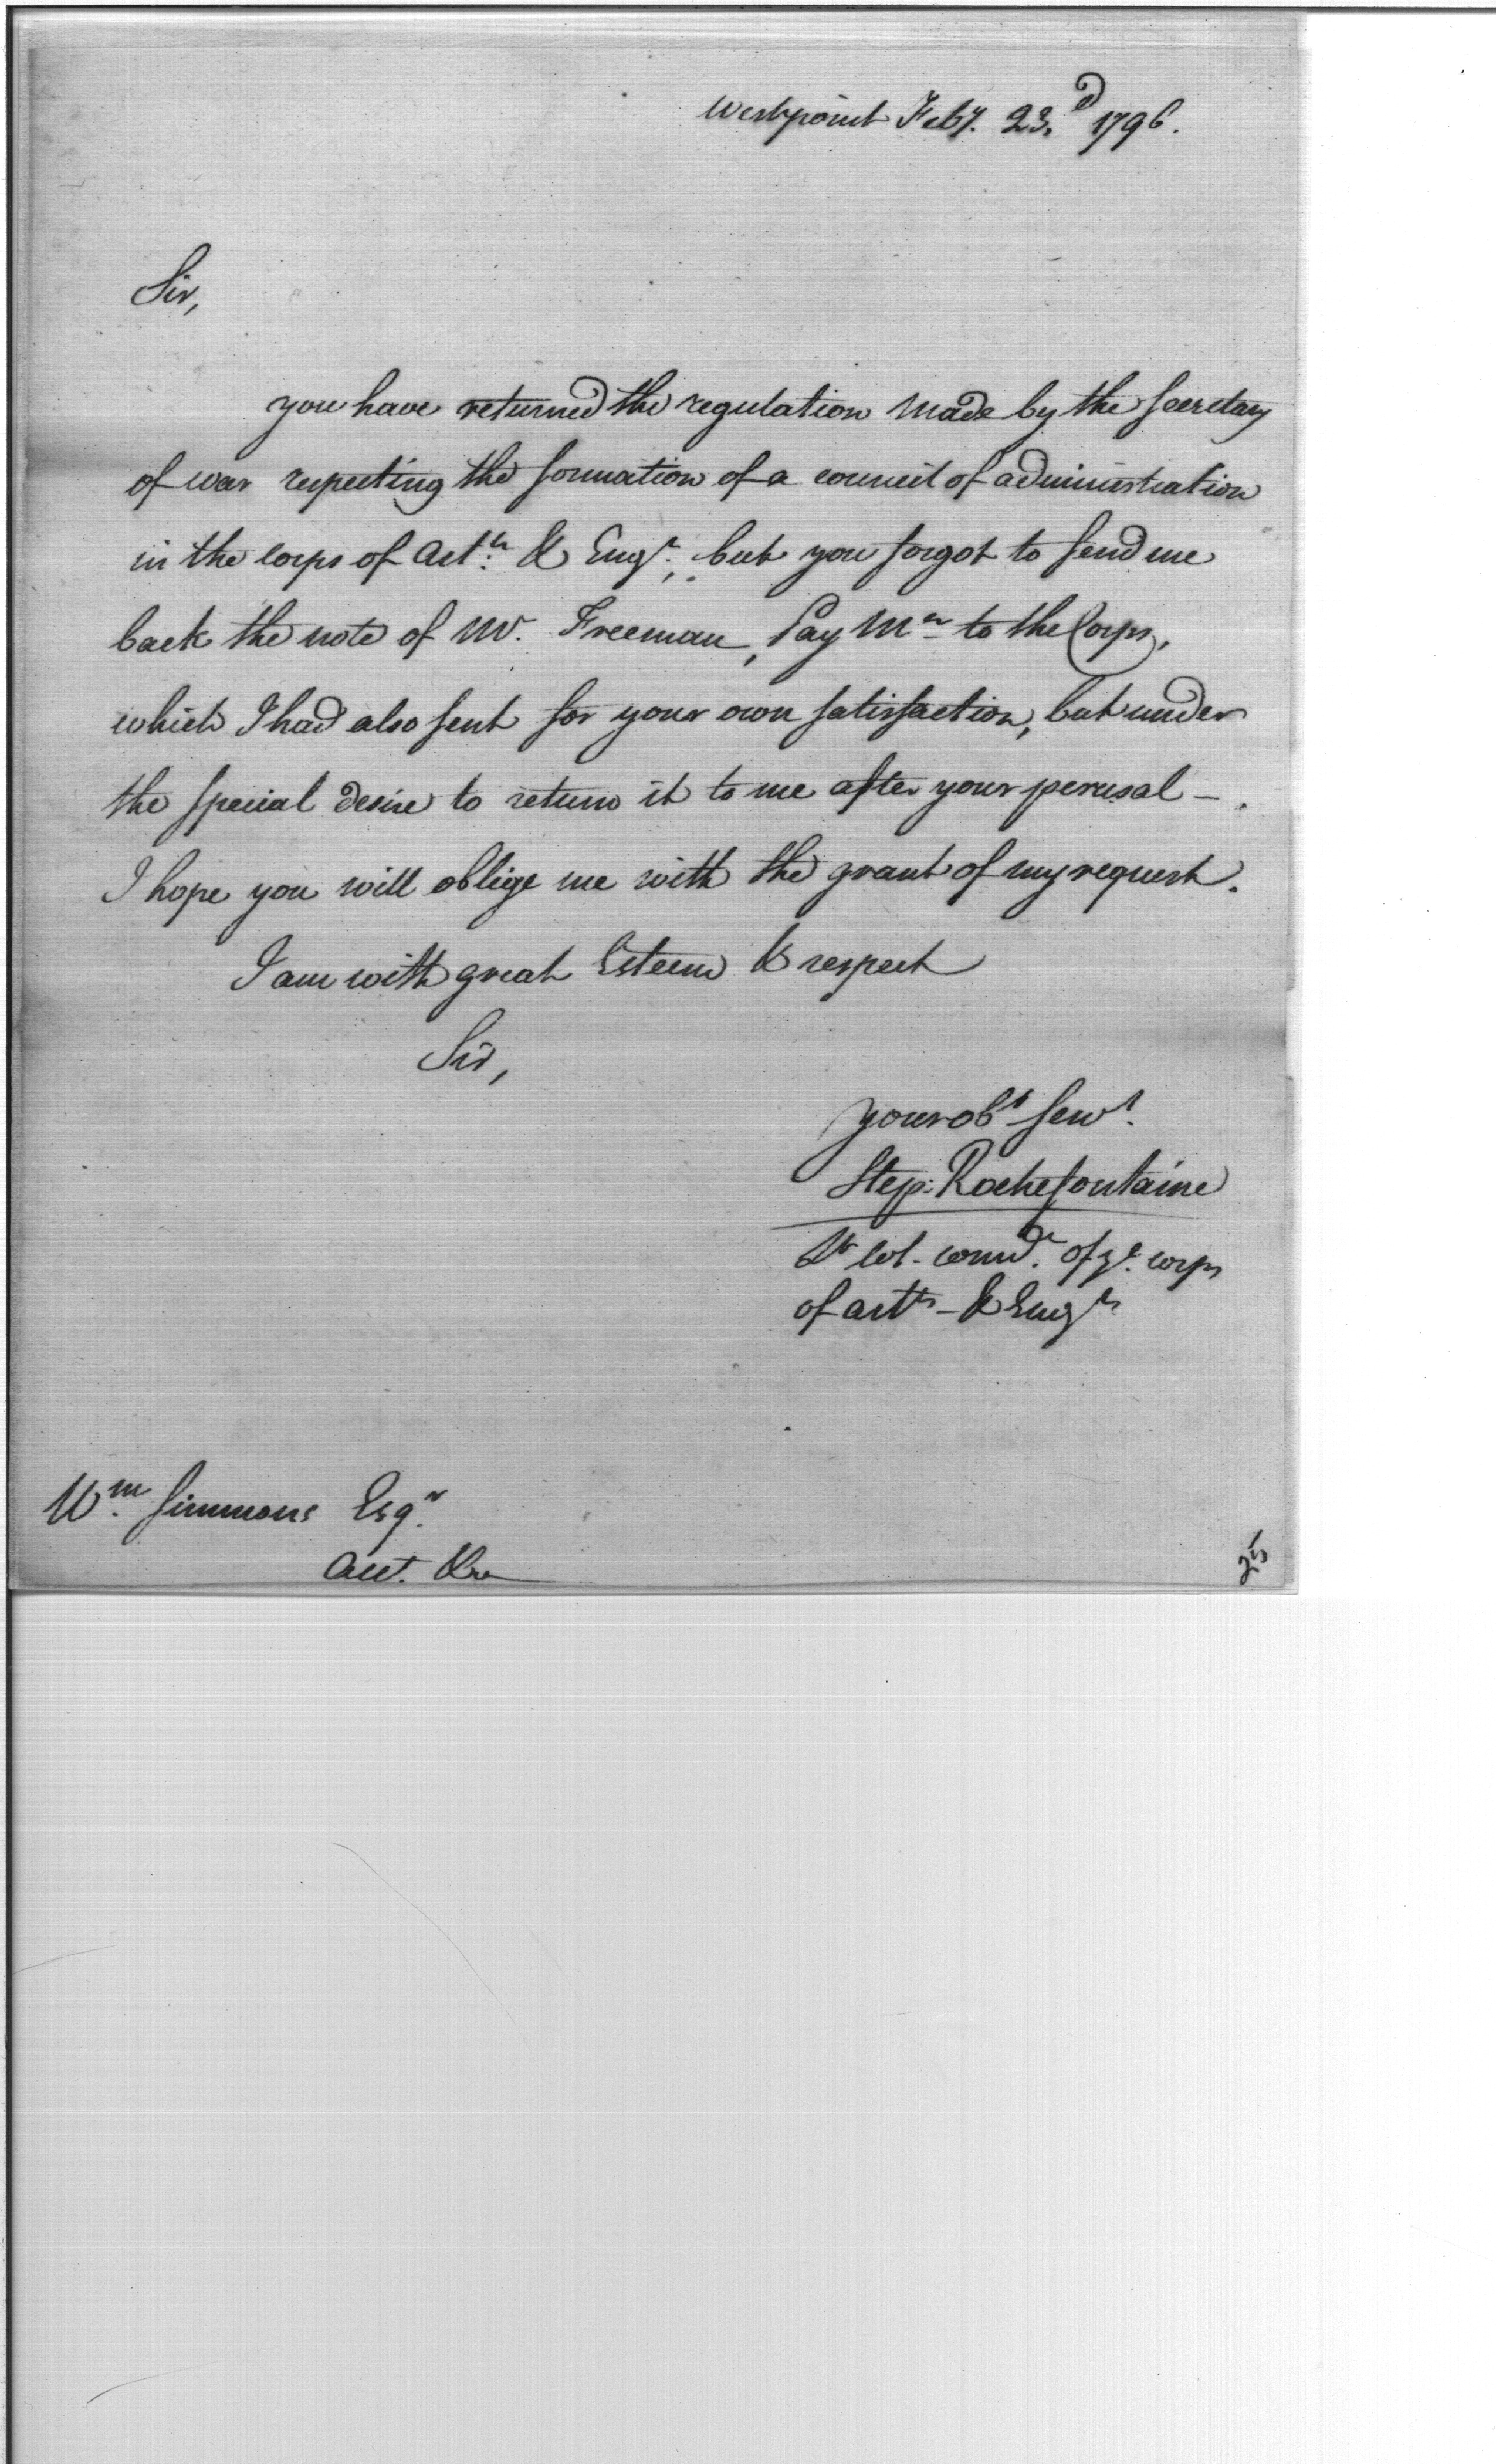 Westpoint Feby. 23.d 1796.
Sir,
you have returned the regulation made by the Secretary
of war respecting the formation of a council of administration
in the corps of Artrs. & Engrs., but you forgot to send me
back the note of Mr. Freeman, Pay Mr to the Corps,
which I had also sent for your own satisfaction, but under
the special desire to return it to me after your perusal - .
I hope you will oblige me with the grant of my request.
I am with great Esteem & respect
Sir,
your obt servt.
Step: Rochefontaine
Lt Col. comdt. of ye. corps
of artrs - & Engrs
Wm. Simmons Esqr.
Acct. &ca
25